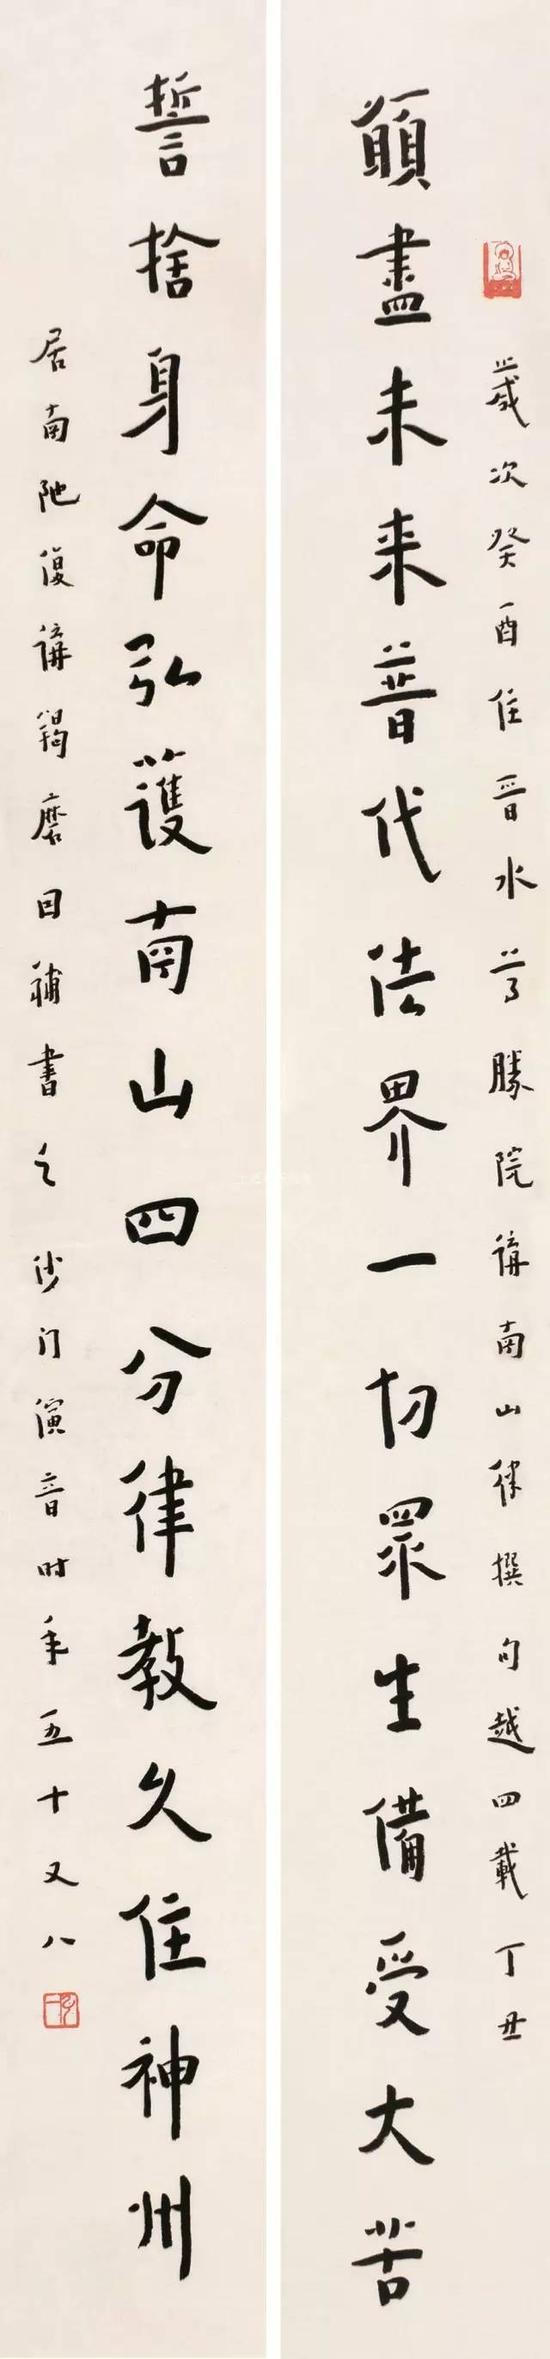 歲次癸酉住晉水尊勝院講南山律撰句越四載丁丑
願盡未來普代法界一切眾生備受大苦
誓捨身命弘護南山四分律教久住神州
居南陀復講羯磨因補書之沙门演音时年五十又八